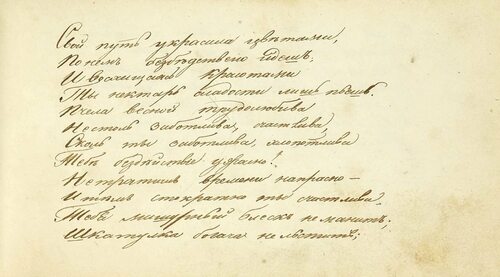 Свой путь украсила цвѣтами,
По нимъ безбѣдственно идешь,
И восхищаясь красотами
Ты нектаръ сладости лишь пьешь.
Пчела весною трудолюбива
Не столь заботлива, счастлива,
Сколь ты заботлива, хлопотлива
Тебѣ бездѣйствіе ужасно!
Не тратишь времени напрасно –
И тѣмъ стократно ты счастлива.
Тебѣ мишурный блескъ не манитъ;
Шкатулка богача не льститъ;